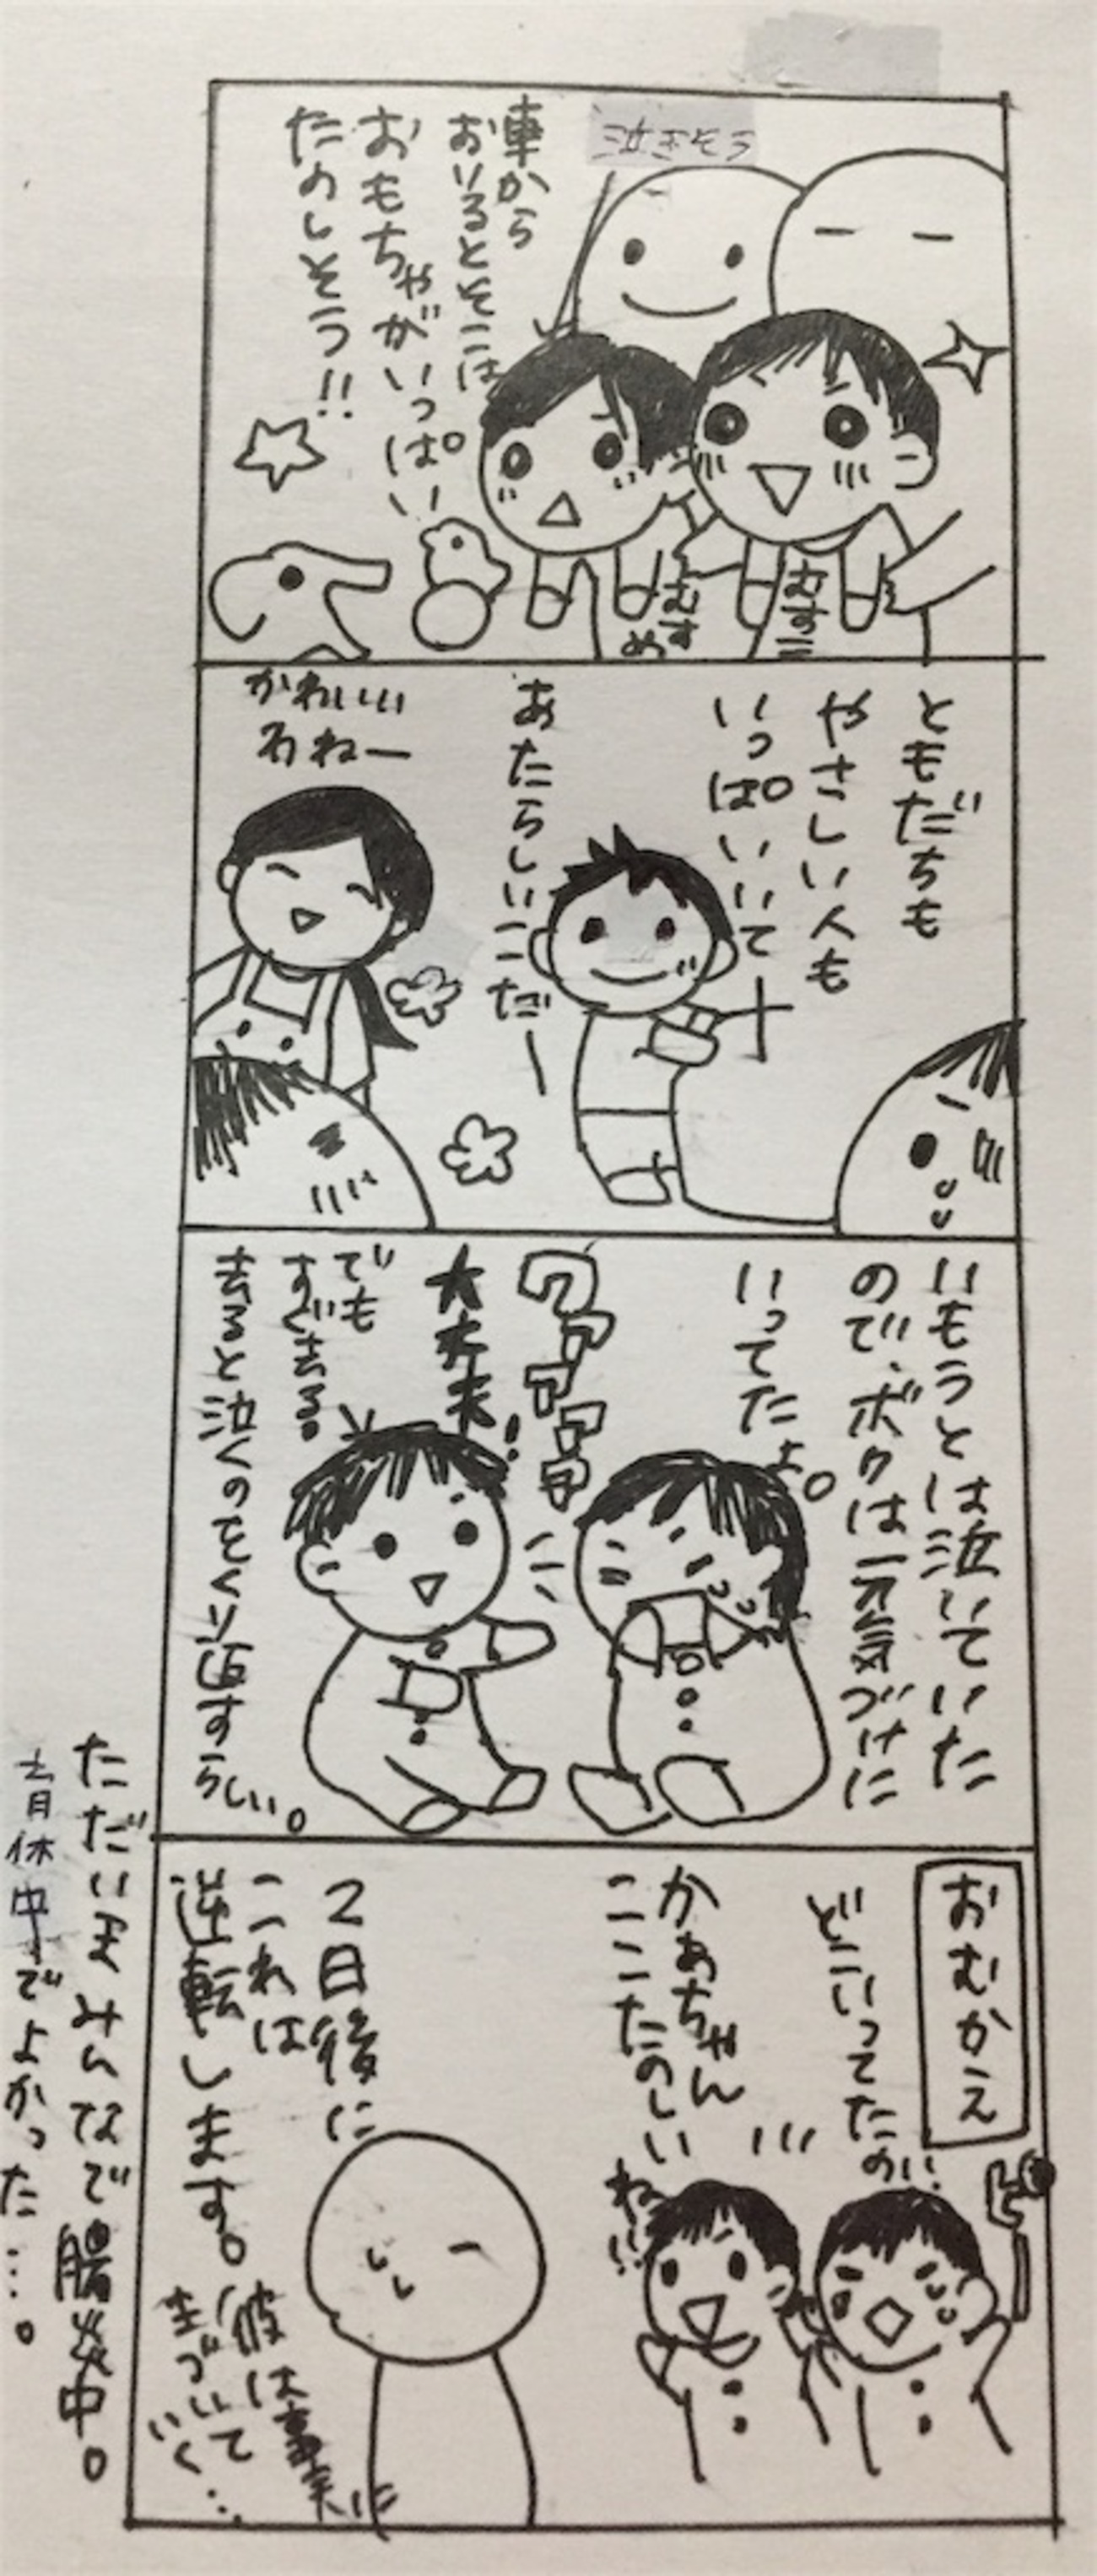 泣きそう
車から
おりるとそこは
おもちゃがいっぱい
たのしそう!!
むすこ
むす
め
ともだちも
やさしい人も
いっぱいいて
あたらしいこだー
かわいい
わねー
いもうとは泣いていた
ので、ボクは元気づけに
いってたよ。
大丈夫!
でも
すぐ去る。
去ると泣くのをくり返すらしい。
おむかえ
どこいってたの!!
かあちゃん
ここたのしい
ね!!
2日後に
これは
逆転します。
(彼は事実に
きづいて
いく…
ただいまみんなで腸炎中。
育休中でよかった…。